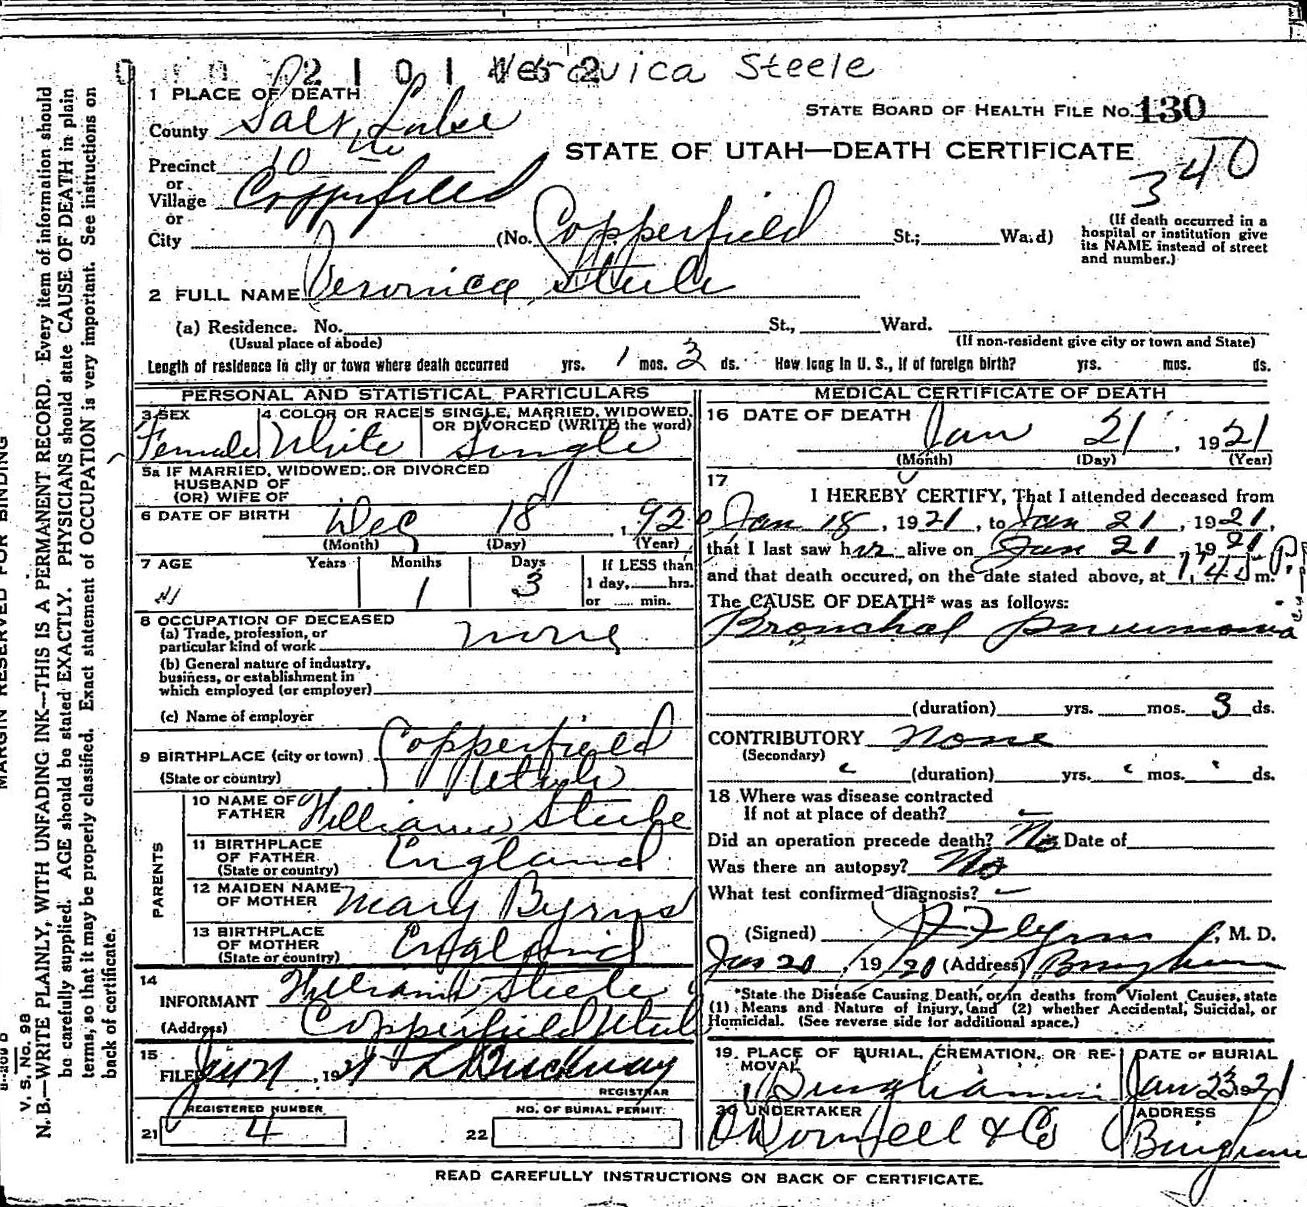 Veronica Steele
1 PLACE OF DEATH
STATE BOARD OF HEALTH FILE No. 130
County Salt Lake
STATE OF UTAH—DEATH CERTIFICATE
340
Precinct
or
Village Copperfield
or
City (No. Copperfield St.; Ward)
(If death occurred in a
hospital or institution give
its NAME instead of street
and number.)
2 FULL NAME Veronica Steele
(a) Residence. No. St., Ward.
(Usual place of abode) (If non-resident give city or town and State)
Length of residence in city or town where death occurred yrs. 1 mos. 3 ds. How long in U. S., if of foreign birth? yrs. mos. ds.
PERSONAL AND STATISTICAL PARTICULARS
3 SEX 4 COLOR OR RACE 5 SINGLE, MARRIED, WIDOWED,
OR DIVORCED (WRITE the word)
Female White Single
5a IF MARRIED, WIDOWED, OR DIVORCED
HUSBAND OF
(OR) WIFE OF
6 DATE OF BIRTH Dec 18, 1920
(Month) (Day) (Year)
7 AGE Years Months Days If LESS than
1 day, hrs.
or min.
1 3
8 OCCUPATION OF DECEASED
(a) Trade, profession, or
particular kind of work none
(b) General nature of industry,
business, or establishment in
which employed (or employer)
(c) Name of employer
9 BIRTHPLACE (city or town) Copperfield
(State or country) Utah
PARENTS
10 NAME OF
FATHER William Steele
11 BIRTHPLACE
OF FATHER England
(State or country)
12 MAIDEN NAME
OF MOTHER Mary Byrns
13 BIRTHPLACE
OF MOTHER England
(State or country)
14
INFORMANT William Steele
(Address) Copperfield Utah
15
FILED , 1921
REGISTRAR
REGISTERED NUMBER NO. OF BURIAL PERMIT
21 4 22
MEDICAL CERTIFICATE OF DEATH
16 DATE OF DEATH Jan 21, 1921
(Month) (Day) (Year)
17
I HEREBY CERTIFY, That I attended deceased from
Jan 18, 1921, to Jan 21, 1921,
that I last saw her alive on Jan 21, 1921
and that death occured, on the date stated above, at 1:45 P.m.
The CAUSE OF DEATH* was as follows:
Bronchal pneumonia
(duration) yrs. mos. 3 ds.
CONTRIBUTORY None
(Secondary)
(duration) yrs. mos. ds.
18 Where was disease contracted
If not at place of death?
Did an operation precede death? No Date of
Was there an autopsy? No
What test confirmed diagnosis?
(Signed) Flynn, M. D.
Jan 20, 1920 (Address) Bingham
*State the Disease Causing Death, or in deaths from Violent Causes, state
(1) Means and Nature of Injury, (and (2) whether Accidental, Suicidal, or
Homicidal. (See reverse side for additional space.)
19. PLACE OF BURIAL, CREMATION, OR RE-
MOVAL DATE OF BURIAL
Bingham Jan 23 21
20 UNDERTAKER ADDRESS
O'Donnell & Co Bingham
READ CAREFULLY INSTRUCTIONS ON BACK OF CERTIFICATE.
MARGIN RESERVED FOR BINDING
V. S. No. 98
N. B.—WRITE PLAINLY, WITH UNFADING INK—THIS IS A PERMANENT RECORD. Every item of information should
be carefully supplied. AGE should be stated EXACTLY. PHYSICIANS should state CAUSE OF DEATH in plain
terms, so that it may be properly classified. Exact statement of OCCUPATION is very important. See instructions on
back of certificate.